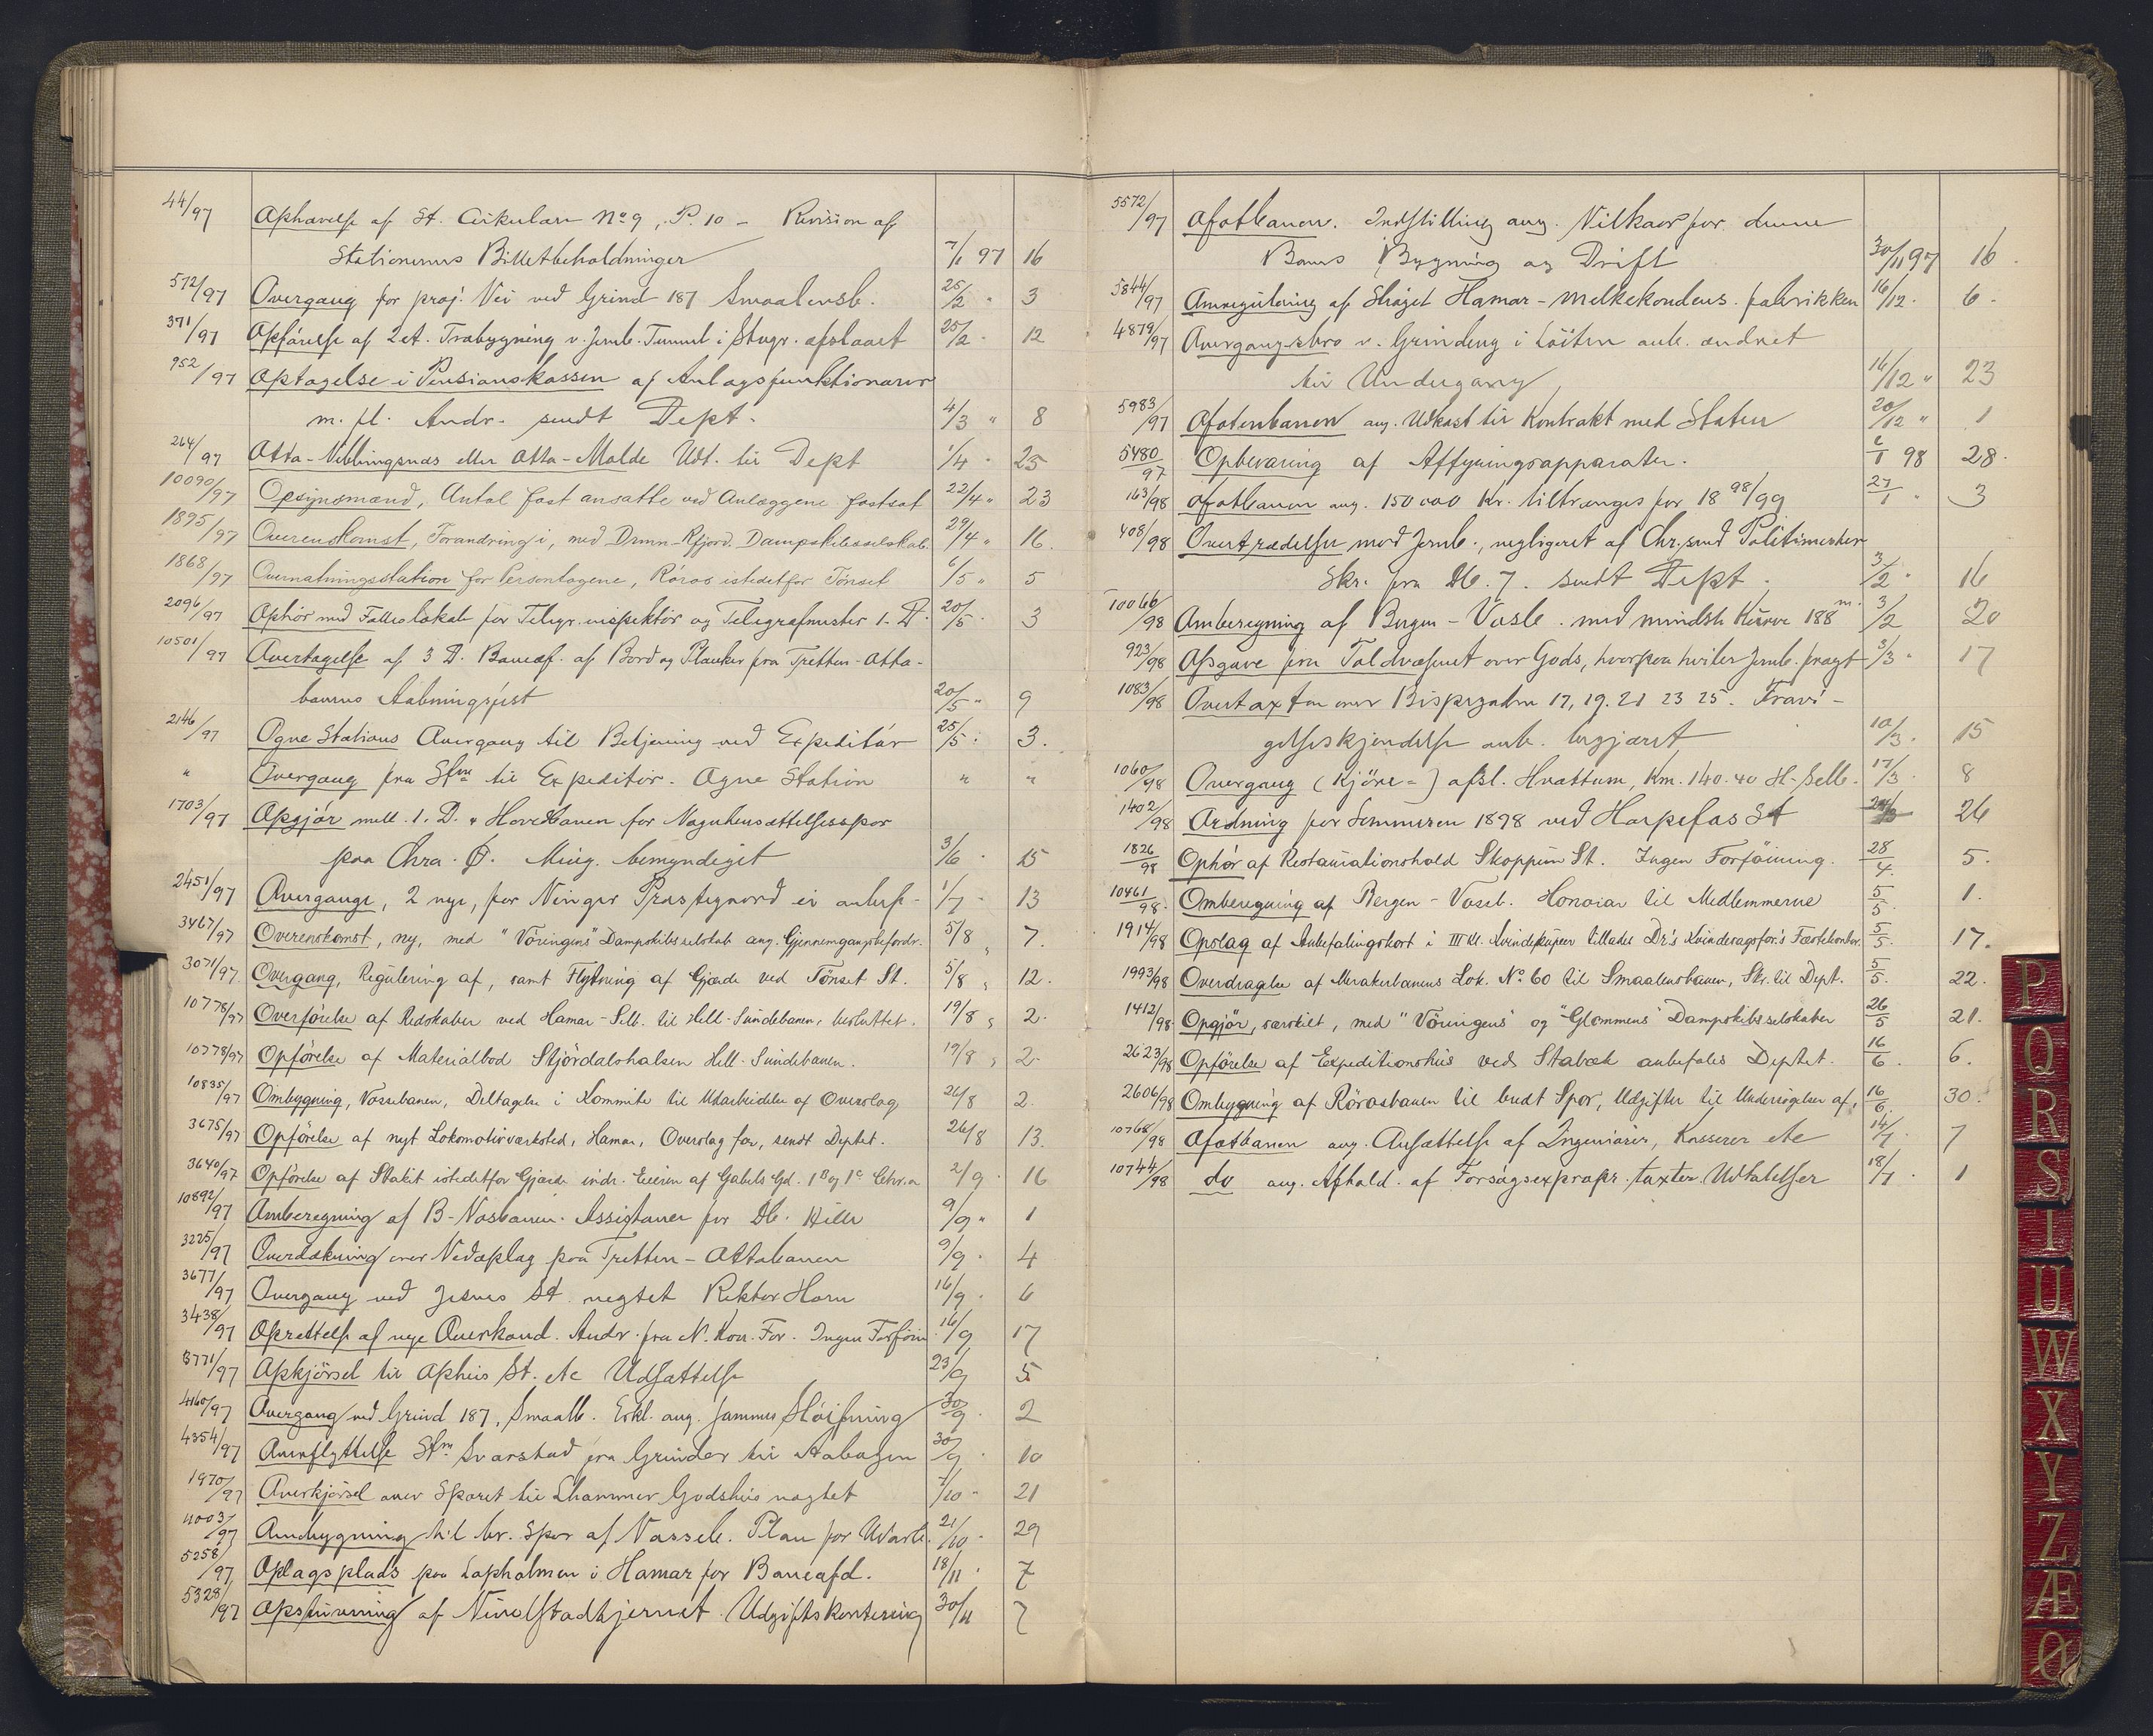 44/97 Ophævelse af St. Cirkulære No 9, P. 10 - Revision af
Stationernes Billetbeholdninger 7/1 97 16
572/97 Overgang for proj. Vei ved Grind 187 Smaalensb. 25/2 " 3
371/97 Opførelse af 2 et. Træbygning v. Jernb. Tunnel i afslaaet 25/2 " 12
952/97 Optagelse i Pensionskassen af Anlægsfunktionærer
m. fl. Andr. sendt Dept. 4/3 " 8
264/97 Otta - Veblungsnæs eller Otta - Molde Udt. til Dept 1/4 " 25
10090/97 Opsynsmænd, Antal fast ansatte ved Anlæggene fastsat 22/4 " 23
1895/97 Overenskomst, Forandring i, med Drmn-Kfjord. Dampskibsselskab. 29/4 " 16.
1868/97 Overnatningsstation for Persontogene, Röros istedetfor Tönset 6/5 " 5
2096/97 Ophør med Fælleslokale for Telegr. inspektør og Telegrafmester 1. D. 20/5 " 3
10501/97 Overtagelse af 3 D. Baneaf. af Bord og Planker fra Tretten-Otta-
banens Aabningsfest 20/5 " 9
2146/97 Ogne Stations Overgang til Betjening ved Expeditør 25/5 " 3.
" Overgang fra Stm til Expeditør. Ogne Station " "
1703/97 Opgjør mell. 1. D. & Hovedbanen for Vognhensættelsesspor
paa Chra. Ø. Ming. bemyndiget 3/6 " 15
2451/97 Overgange, 2 nye, for Vinger Præstegaard ei anbef. 1/7 " 13
3467/97 Overenskomst, ny, med "Vöringens" Dampskibsselskab ang. Gjennemgangsbefordr. 5/8 " 7.
3071/97. Overgang, Regulering af, samt Flytning af Gjærde ved Tönset St. 5/8 " 12.
10778/97 Overförelse af Redskaber ved Hamar-Selb. til Hell-Sundebanen, besluttet. 19/8 " 2.
10778/97 Opförelse af Materialbod Stjördalshalsen Hell-Sundebanen. 19/8 " 2.
10835/97 Ombygning, Vossebanen, Deltagelse i Komite til Udarbeidelse af Overslag 26/8 2.
3675/97 Opförelse af nyt Lokomotivværksted, Hamar, Overslag for, sendt Deptet. 26/8 13.
3640/97 Opförelse af Stakit istedetfor Gjærde indr. Eieren af Gabels Gd. 1B og 1C Chr.a 2/9 " 16
10892/97 Omberegning af B-Vosbanen. Assistance for Db. Hille 9/9 " 1
3225/97 Overdækning over Vedoplag paa Tretten-Ottabanen 9/9 " 4
3677/97 Overgang ved Jesnes St. negtet Rektor Horn 16/9 " 6
3438/97 Oprettelse af nye Overkond. Andr. fra N. Kon. For. Ingen Forföin. 16/9 17
3771/97 Opkjörsel til Ophus St. etc Udsættelse 23/9 5
4160/97 Overgang ved Grind 187, Smaalb. Erkl. ang. sammes Sløifning 30/9 2
4354/97 Omflyttelse Stm Svarstad fra Grinder til Aabogen 30/9 " 10
1970/97 Overkjørsel over Sporet til Lhammer Godshus nægtet 7/10 " 21
4003/97 Ombygning til br. Spor af Vosseb. Plan for Udarb. 21/10 " 29
5258/97 Oplagsplads paa Lapholmen i Hamar for Baneafd. 18/11 " 7
5328/97 Opstuvning af Udgiftskontering 30/11 7
5572/97 Ofotbanen. Indstilling ang. Vilkaar for denne
Banes Bygning og Drift 30/11 97 16.
5844/97 Omregulering af Strøget Hamar-Melkekondens. fabrikken 16/12. 6.
4879/97 Overgangsbro v. Grindeng i Löiten anb. ændret
til Undergang 16/12 " 23
5983/97 Ofotenbanen ang. Udkast til Kontrakt med Staten 20/12 " 1
5480/97 Opbevaring af Affyringsapparater. 6/1 98 28.
163/98 Ofotbanen ang. 150 000 Kr. tiltrænges for 1898/99 27/1 " 3
408/98 Overtrædelser mod Jernb., negligeret af Chr.sund Politimester
Skr. fra Db. 7. sendt Dept. 3/2 " 16
10066/98 Omberegning af Bergen-Vosb. med mindste Kurve 188 m. 3/2 20
923/98 Opgave fra Toldvæsenet over Gods, hvorpaa hviler Jernb. fragt 3/3 " 17
1083/98 Overtaxten over Bispegaden 17, 19. 21 23 25. Fravi-
gelseskjendelse anb. begjæret 10/3 " 15
1060/98 Overgang (Kjöre=) afsl. Hvattum, Km. 140.40 H-Selb. 17/3 " 8
1402/98 Ordning for Sommeren 1898 ved Harpefos St 26
1826/98 Ophör af Restaurationshold Skoppum St. Ingen Forföining. 28/4. 5.
10461/98. Omberegning af Bergen-Vossb. Honorar til Medlemmerne 5/5. 1.
1914/98 Opslag af Anbefalingskort i III Kl. Kvindekupeer tillades Dr's Kvindesagsfor's Fæstekontor. 5/5. 17.
1993/98 Overdragelse af Merakerbanens Lok. No 60 til Smaalensbanen, Skr. til Dept. 5/5. 22.
1412/98 Opgjör, særskilt, med "Vöringens" og "Glommens" Dampskibsselskaber 26/5 21.
2623/98 Opförelse af Expeditionshus ved Stabæk anbefales Deptet. 16/6. 6.
2606/98 Ombygning af Rörosbanen til bredt Spor, Udgifter til Undersögelser af, 16/6. 30.
10768/98 Ofotbanen ang. Ansættelse af Ingeniører, Kasserer etc 14/7. 7
10744/98 do ang. Afhold. af Forsøgsexpropr. taxter. Udtalelser 18/7. 1
P
Q
R
S
T
U
W
X
Y
Z
Æ
Ø